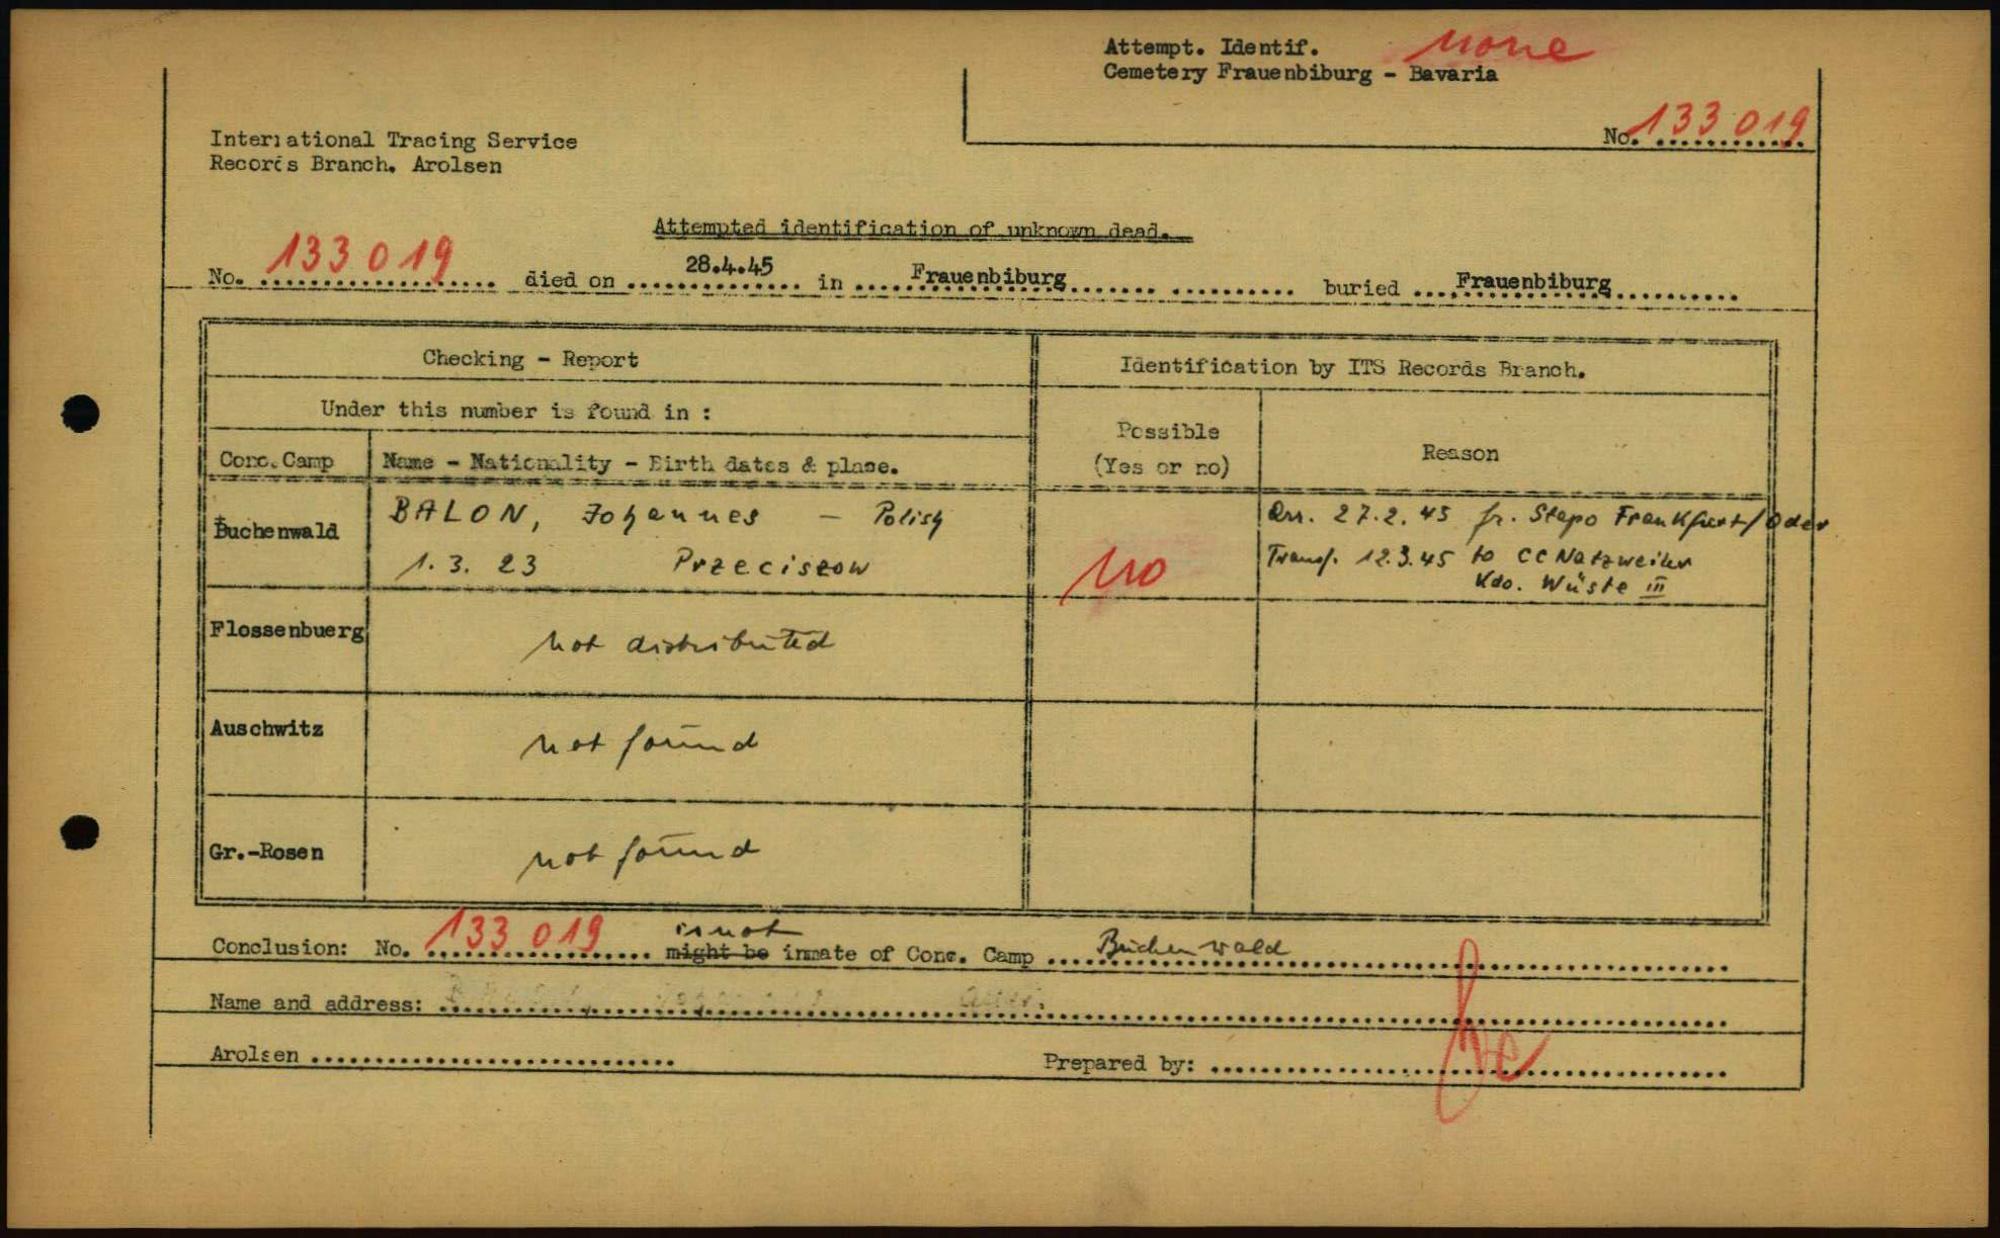 Attempt. Identif. none
Cemetery Frauenbiburg - Bavaria
No. 133 019
International Tracing Service
Records Branch. Arolsen
Attempted identification of unknown dead.
No. 133 019 died on 28.4.45 in Frauenbiburg buried Frauenbiburg
Checking - Report
Identification by ITS Records Branch.
Under this number is found in :
Possible
(Yes or no)
Reason
Conc.Camp
Name - Nationality - Birth dates & place.
Buchenwald
BALON, Johannes - Polish
1. 3. 23 Przeciszow
no
Arr. 27.2.45 fr. Stapo Frankfurt/Oder
Transf. 12.3.45 to CC Natzweiler
Kdo. Wüste III
Flossenbuerg
not distributed
Auschwitz
not found
Gr.-Rosen
not found
is not
Conclusion: No. 133 019 might be inmate of Conc. Camp Buchenwald
Name and address:
Arolsen
Prepared by: